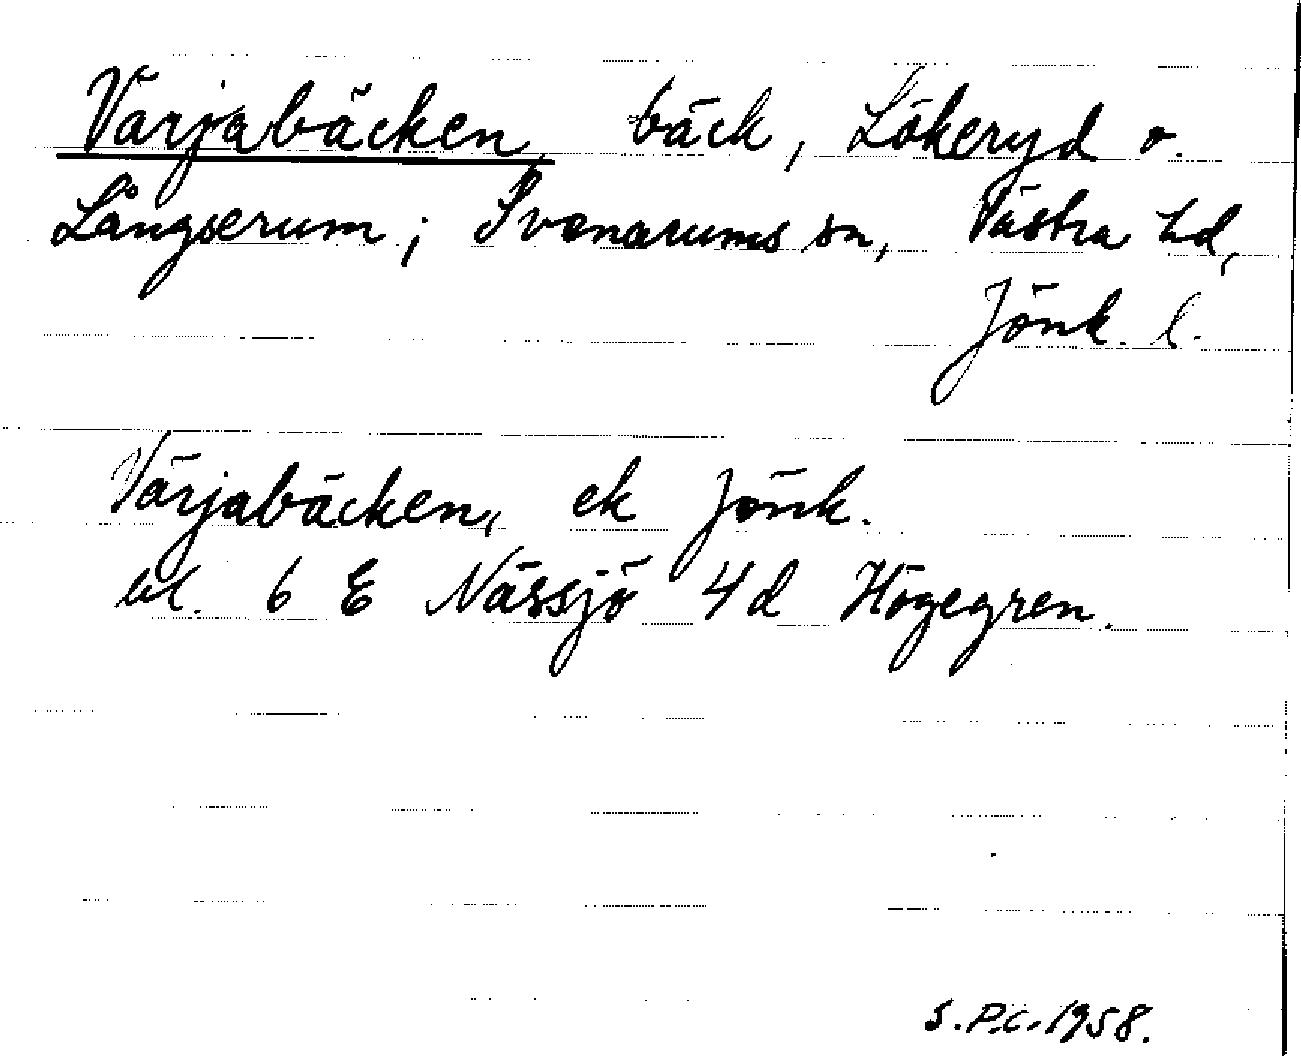 Värjabäcken, bäck, Lökeryd o.
Långserum; Svenarums sn, Västra hd,
Jönk. l.
Värjabäcken, ek Jönk.
bl. 6 E Nässjö 4d Högegren.
S.P.C. 1958.